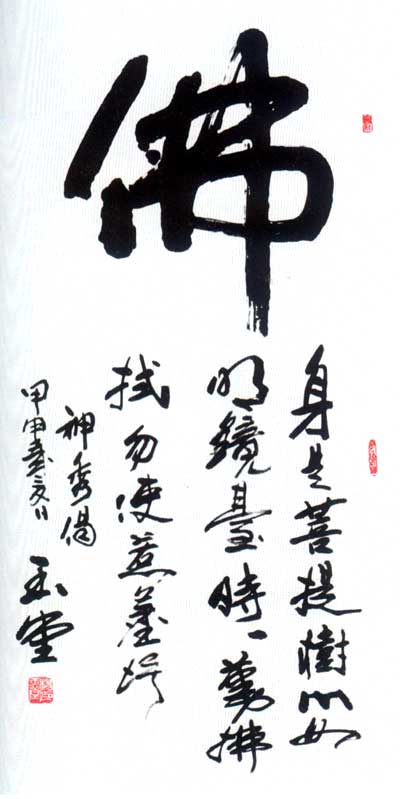 佛
身是菩提樹心如
明鏡臺時々勤拂
拭勿使惹塵埃
神秀偈
甲申
玉堂